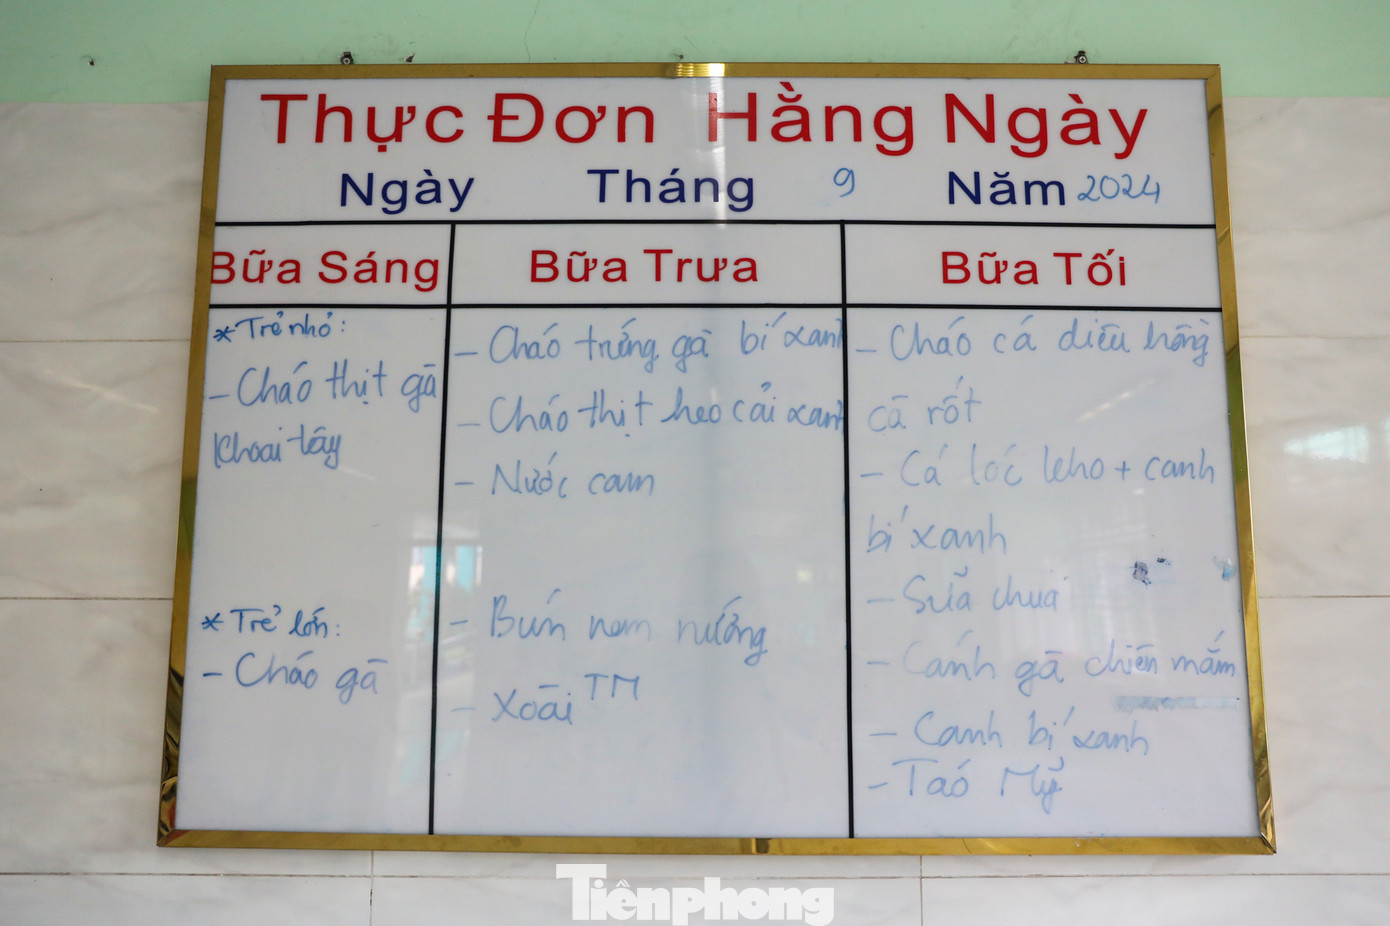 Thực Đơn Hằng Ngày
Ngày Tháng 9 Năm 2024
Bữa Sáng
Bữa Trưa
Bữa Tối
* Trẻ nhỏ:
- Cháo thịt gà
Khoai tây
* Trẻ lớn:
- Cháo gà
- Cháo trứng gà bí xanh
- Cháo thịt heo cải xanh
- Nước cam
- Bún nem nướng
- Xoài TM
- Cháo cá diêu hồng
cà rốt
- Cá lóc kho + canh
bí xanh
- Sữa chua
- Cánh gà chiên mắm
- Canh bí xanh
- Táo Mỹ
Tiênphong